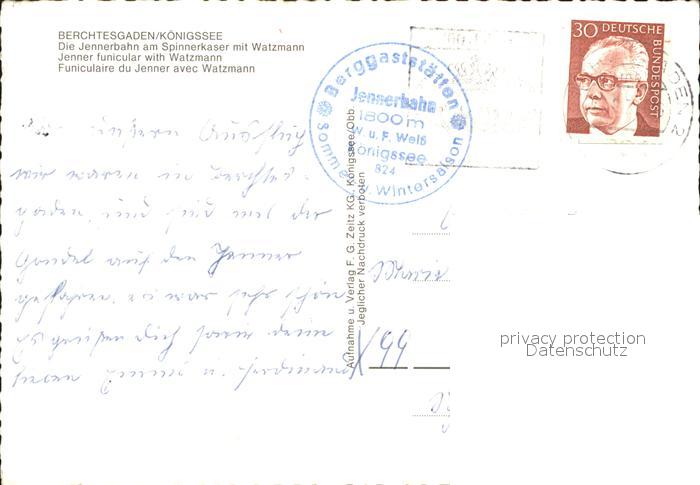 BERCHTESGADEN/KÖNIGSSEE
Die Jennerbahn am Spinnerkaser mit Watzmann
Jenner funicular with Watzmann
Funiculaire du Jenner avec Watzmann
30 DEUTSCHE BUNDESPOST
Berggaststätten
Jennerbahn
1800 m
W. u. F. Weiß
Königssee
824
Sommer u. Wintersaison
Aufnahme u. Verlag F. G. Zeitz KG., Königssee/Obb.
Jeglicher Nachdruck verboten
Ausflug
wir waren in Berchtes-
gaden und sind mit der
Gondel auf den Jenner
gefahren, es war sehr schön
Es grüßen Dich sowie deine
lieben u. Ferdinand
99
privacy protection
Datenschutz